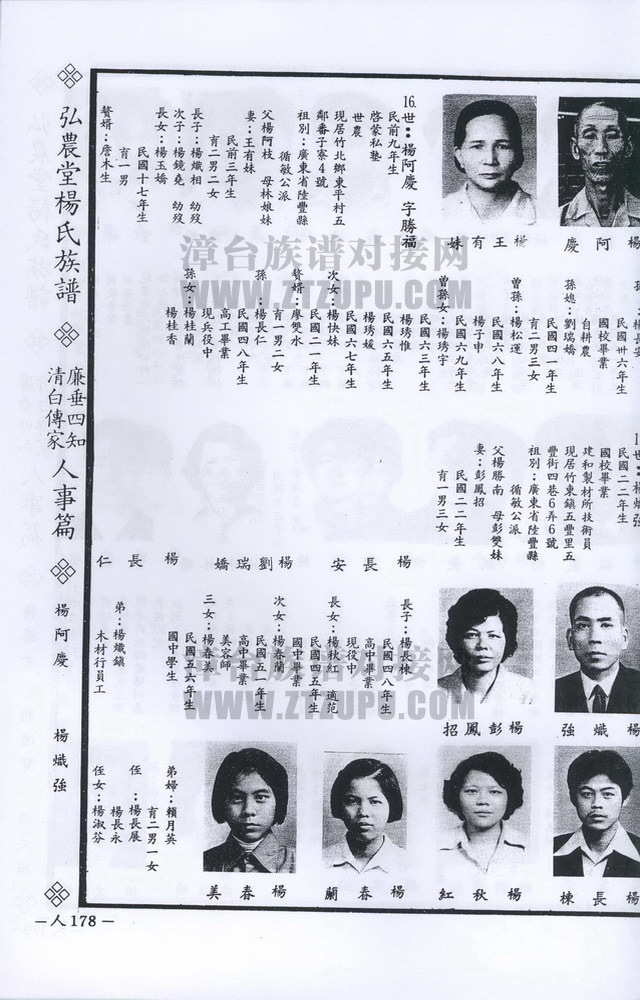 弘農堂楊氏族譜
廉垂四知
清白傳家
人事篇
楊阿慶
楊熾強
－人178－
楊阿慶
楊王有妹
16.世：楊阿慶 字勝福
民前九年生
啓蒙私塾
世農
現居竹北鄉東平村五
鄰番子寮4號
祖別：廣東省陸豐縣
循敏公派
父楊阿枝 母林娘妹
妻：王有妹
民前三年生
育二男二女
長子：楊熾相 幼歿
次子：楊鏡堯 幼歿
長女：楊玉嬌
民國十七年生
育一男
贅婿：詹木生
民國卅六年生
國校畢業
自耕農
孫媳：劉瑞嬌
民國四一年生
育二男三女
曾孫：楊松運
民國六八年生
楊子申
民國六九年生
曾孫女：楊秀宇
民國六三年生
楊秀惟
民國六五年生
楊秀媛
民國六七年生
次女：楊快妹
民國二一年生
贅婿：廖雙水
育一男二女
孫：楊長仁
民國四八年生
高工畢業
現兵役中
孫女：楊桂蘭
楊桂香
民國二二年生
國校畢業
建和製材所技術員
現居竹東鎮五豐里五
豐街四巷6弄6號
祖別：廣東省陸豐縣
循敏公派
父楊勝南 母彭雙妹
妻：彭鳳招
民國二二年生
育一男三女
楊長安
楊劉瑞嬌
楊長仁
楊熾強
楊彭鳳招
長子：楊長棟
民國四八年生
高中畢業
現役中
長女：楊秋紅 適范
民國四五年生
國中畢業
次女：楊春蘭
民國五二年生
高中畢業
美容師
三女：楊春美
民國五六年生
國中學生
弟：楊熾鎮
木材行員工
楊長棟
楊秋紅
楊春蘭
楊春美
弟婦：賴月英
育二男一女
侄：楊長展
楊長永
侄女：楊淑芬
漳台族谱对接网
WWW.ZTZUPU.COM
漳台族谱对接网
WWW.ZTZUPU.COM